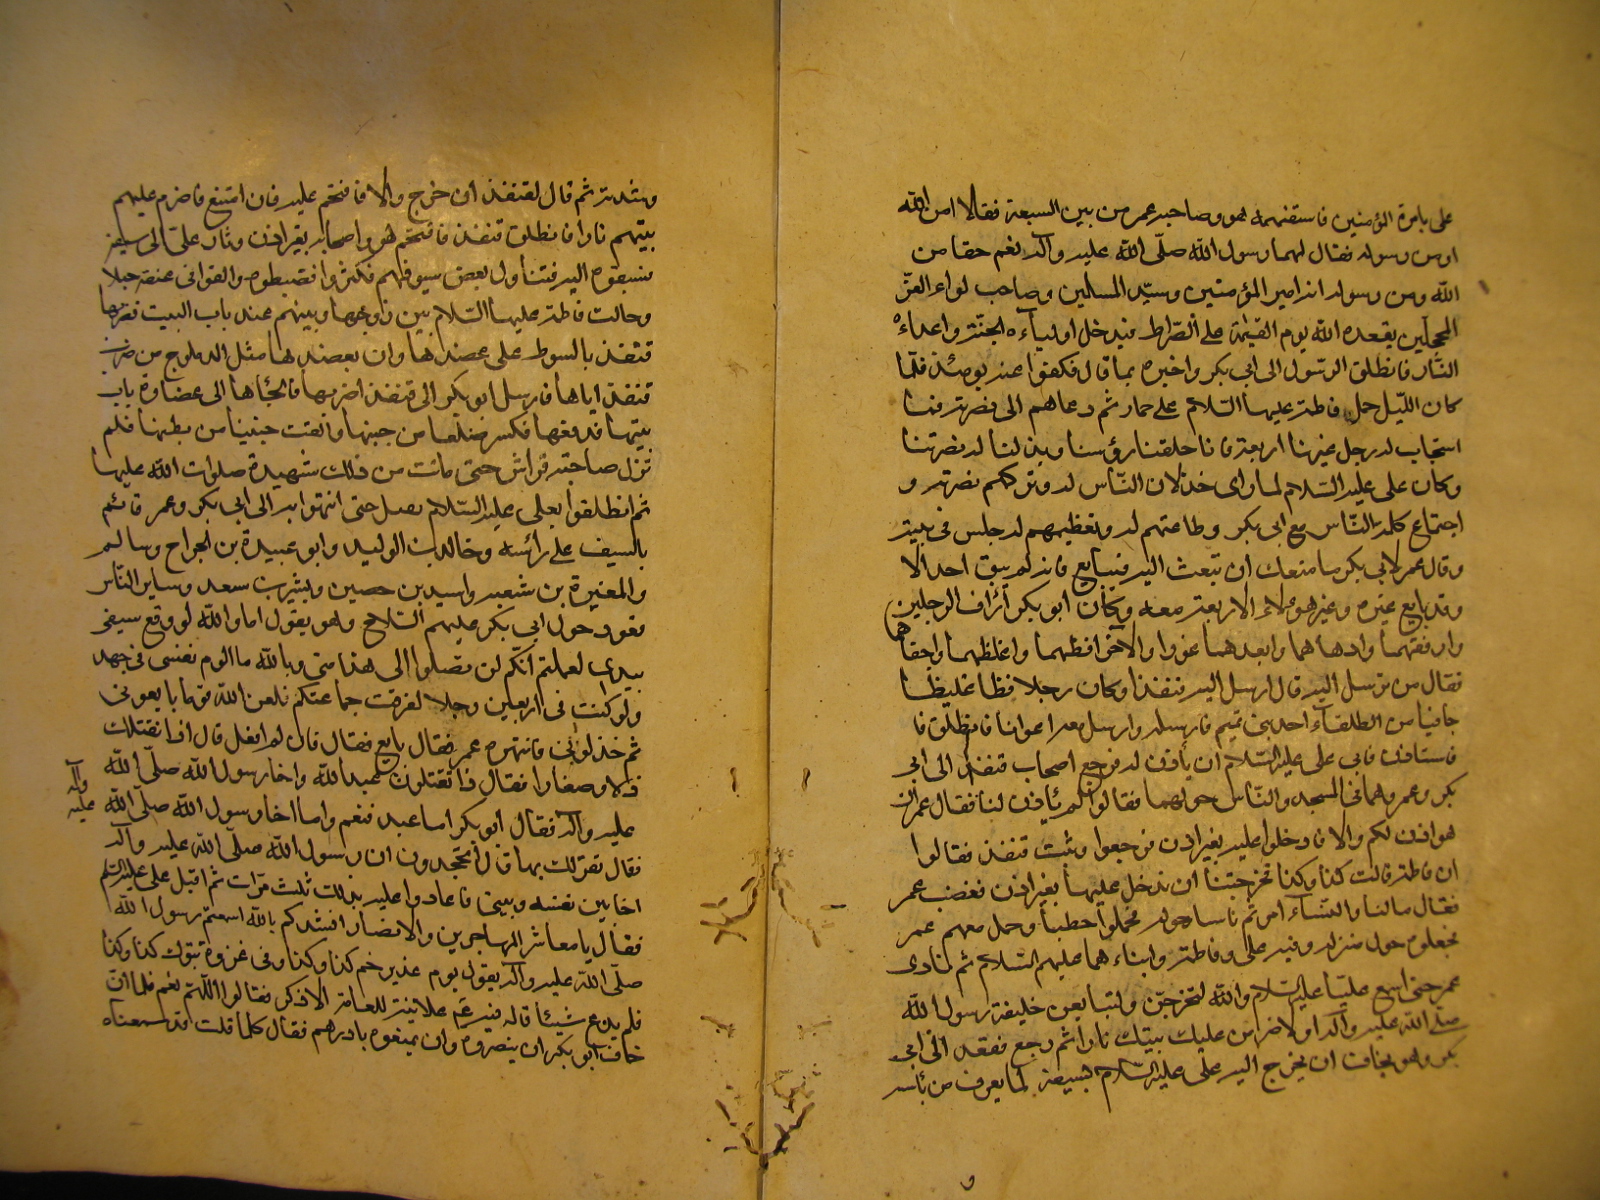 على بامرة المؤمنين فاستفهمه هو وصاحبه عمر من بين السبعة فقالا امن الله
او من رسوله فقال لهما رسول الله صلّى الله عليه وآله نعم حقا من
الله ومن رسوله انه امير المؤمنين وسيّد المسلمين وصاحب لواء الغرّ
المحجلين يقعده الله يوم القيمة على الصّراط فيدخل اولياءه الجنّة واعداءه
النّار فانطلق الرّسول الى ابى بكر واخبره بما قال فكفوا عنه يومئذ فلمّا
كان اللّيل حمل فاطمة عليها السّلام على حمار ثم دعاهم الى نصرته فما
استجاب له رجل غيرنا اربعة فانا حلقنا رؤسنا وبذلنا له نصرتنا
وكان على عليه السّلام لما راى خذلان النّاس له وتركهم نصرته و
اجتماع كلمة النّاس مع ابى بكر وطاعتهم له وتعظيمهم له جلس فى بيته
وقال عمر لابى بكر ما منعك ان تبعث اليه فيبايع فانه لم يبق احد الا
وقد بايع غيره وغير هؤلاء الاربعة معه وكان ابو بكر أرأف الرجلين
وارفقهما وادهاهما وابعدهما غورا والآخر افظهما واغلظهما واجفاهما
فقال من نرسل اليه قال ارسل اليه قنفذا وكان رجلا فظا غليظا
جافيا من الطلقآء احد بنى تميم فارسله وارسل معه اعوانا فانطلق فا
فاستاذن فابى على عليه السّلام ان يأذن له فرجع اصحاب قنفذ الى ابى
بكر وعمر وهما فى المسجد والنّاس حولهما فقالوا لم يأذن لنا فقال عمر ان
هو اذن لكم والا فادخلوا عليه بغير اذن فرجعوا وثبت قنفذ فقالوا
ان فاطمة قالت كذا وكذا تحرجتنا ان ندخل عليها بغير اذن فغضب عمر
فقال مالنا والنّساء امر ثم ناسا حوله فحملوا حطبا وحمل معهم عمر
فجعلوه حول منزله وفيه على وفاطمة وابناءهما عليهم السّلام ثم نادى
عمر حتى اسمع عليّا عليه السّلام والله لتخرجن ولتبايعن خليفة رسول الله
صلّى الله عليه وآله او لاضرمن عليك بيتك نارا ثم رجع فقعد الى ابى
بكر وهو يخاف ان يخرج اليه على عليه السّلام بسيفه لما يعرف من بأسه
و
وشدته ثم قال لقنفذ ان خرج والا فاقتحم عليه فان امتنع فاضرم عليهم
بيتهم نارا فانطلق قنفذ فاقتحم هو واصحابه بغير اذن وثار على الى سيفه
فسبقوه اليه فتناول بعض سيوفهم فكثروا فضبطوه والقوا فى عنقه حبلا
وحالت فاطمة عليها السّلام بين زوجها وبينهم عند باب البيت فضربها
قنفذ بالسوط على عضدها وان بعضدها مثل الدملوج من ضرب
قنفذ اياها فارسل ابو بكر الى قنفذ اضربها فالجئاها الى عضادة باب
بيتها فدفعها فكسر ضلعا من جنبها والقت جنينا من بطنها فلم
تزل صاحبة فراش حتى ماتت من ذلك شهيدة صلوات الله عليها
ثم انطلقوا بعلى عليه السّلام يعتل حتى انتهوا به الى ابى بكر وعمر قائم
بالسيف على رأسه وخالد بن الوليد وابو عبيدة بن الجراح وسالم
والمغيرة بن شعبة واسيد بن حصين وبشير بن سعد وساير النّاس
قعود حول ابى بكر عليهم السّلاح وهو يقول اما والله لو وقع سيفى
بيدى لعلمتم انّكم لن تصلوا الى هذا منى وبالله ما الوم نفسى فى جهد
ولو كنت فى اربعين رجلا لفرقت جماعتكم فلعن الله قوما بايعونى
ثم خذلونى فانتهره عمر فقال بايع فقال فان لم افعل قال اذا نقتلك
ذلا وصغارا فقال اذا تقتلون عبد الله واخا رسول الله صلّى الله
عليه وآله
عليه وآله فقال ابو بكر اما عبد الله فنعم واما اخا رسول الله صلّى الله
فقال تقر لك بها قال أتجحدون ان رسول الله صلّى الله عليه وآله
اخا بين نفسه وبينى فاعادوا عليه بذلك ثلث مرّات ثم اقبل على عليه السّلم
فقال يا معاشر المهاجرين والانصار انشدكم بالله اسمعتم رسول الله
صلّى الله عليه وآله يقول يوم غدير خم كذا وكذا وفى غزوة تبوك كذا وكذا
فلم يدع شيئا قاله فيه عم علانية للعامة الا ذكر فقالوا اللّهم نعم فلما ان
خاف ابو بكر ان ينصروه وان يمنعوه بادرهم فقال كلما قلت قد سمعناه